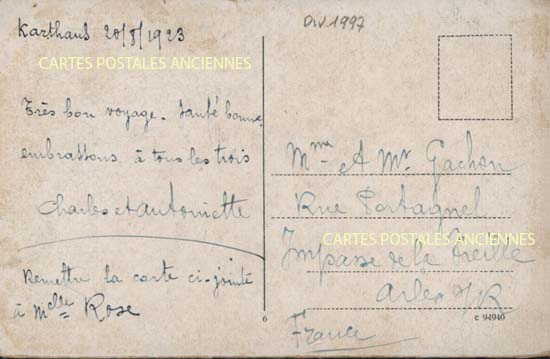 Karthaus 20/8/1923
Div.1997
CARTES POSTALES ANCIENNES
Très bon voyage. Santé bonne,
embrassons à tous les trois
Charles et Antoinette
Remettre la carte ci-jointe
à Melle Rose
Mme et Mr Gachon
Rue Portagnel
CARTES POSTALES ANCIENNES
Impasse de la Treille
Arles s/R
France
6
c 94940